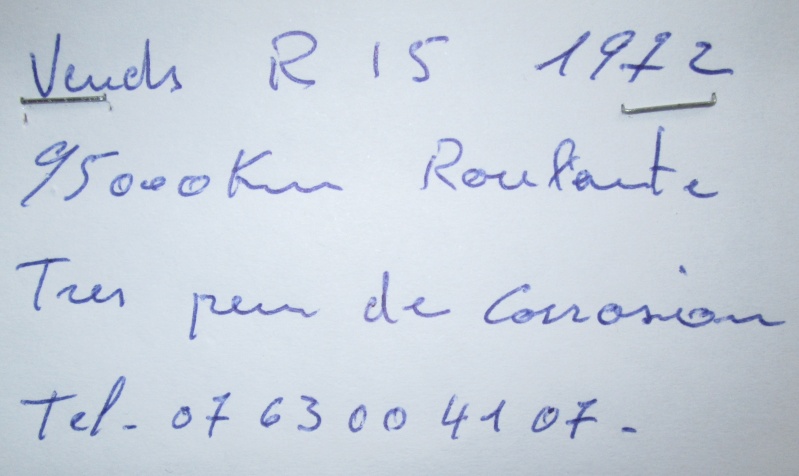 Vends R 15 1972
95000Km Roulante
Tres peu de Corrosion
Tel. 07 63 00 41 07.